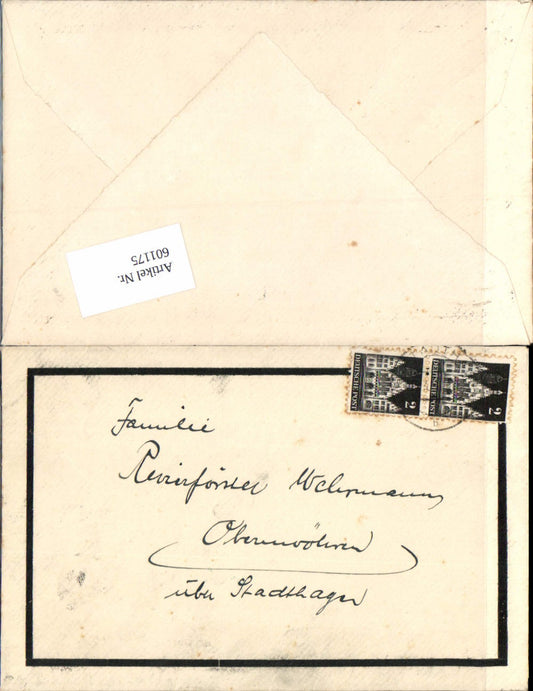 Artikel Nr.
601175
DEUTSCHE POST
2
DEUTSCHE POST
2
Familie
Revierförster Wehrmann,
Obernwöhren
über Stadthagen